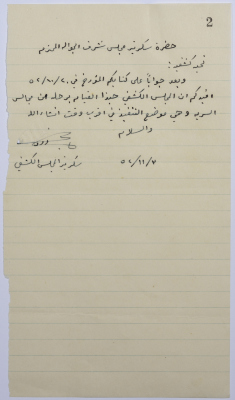 2
حضرة سكرتير مجلس شرف الجوالة المحترم
تحية كشفية :
وبعد جواباً على كتابكم المؤرخ في ٥٢/١٠/٢٠
افيدكم ان المجلس الكشفي حبذ القيام برحلة من مجالس
وهي موضع التنفيذ في اقرب وقت انشاءالله
والسلام
سكرتير المجلس الكشفي
٥٢/١١/٣